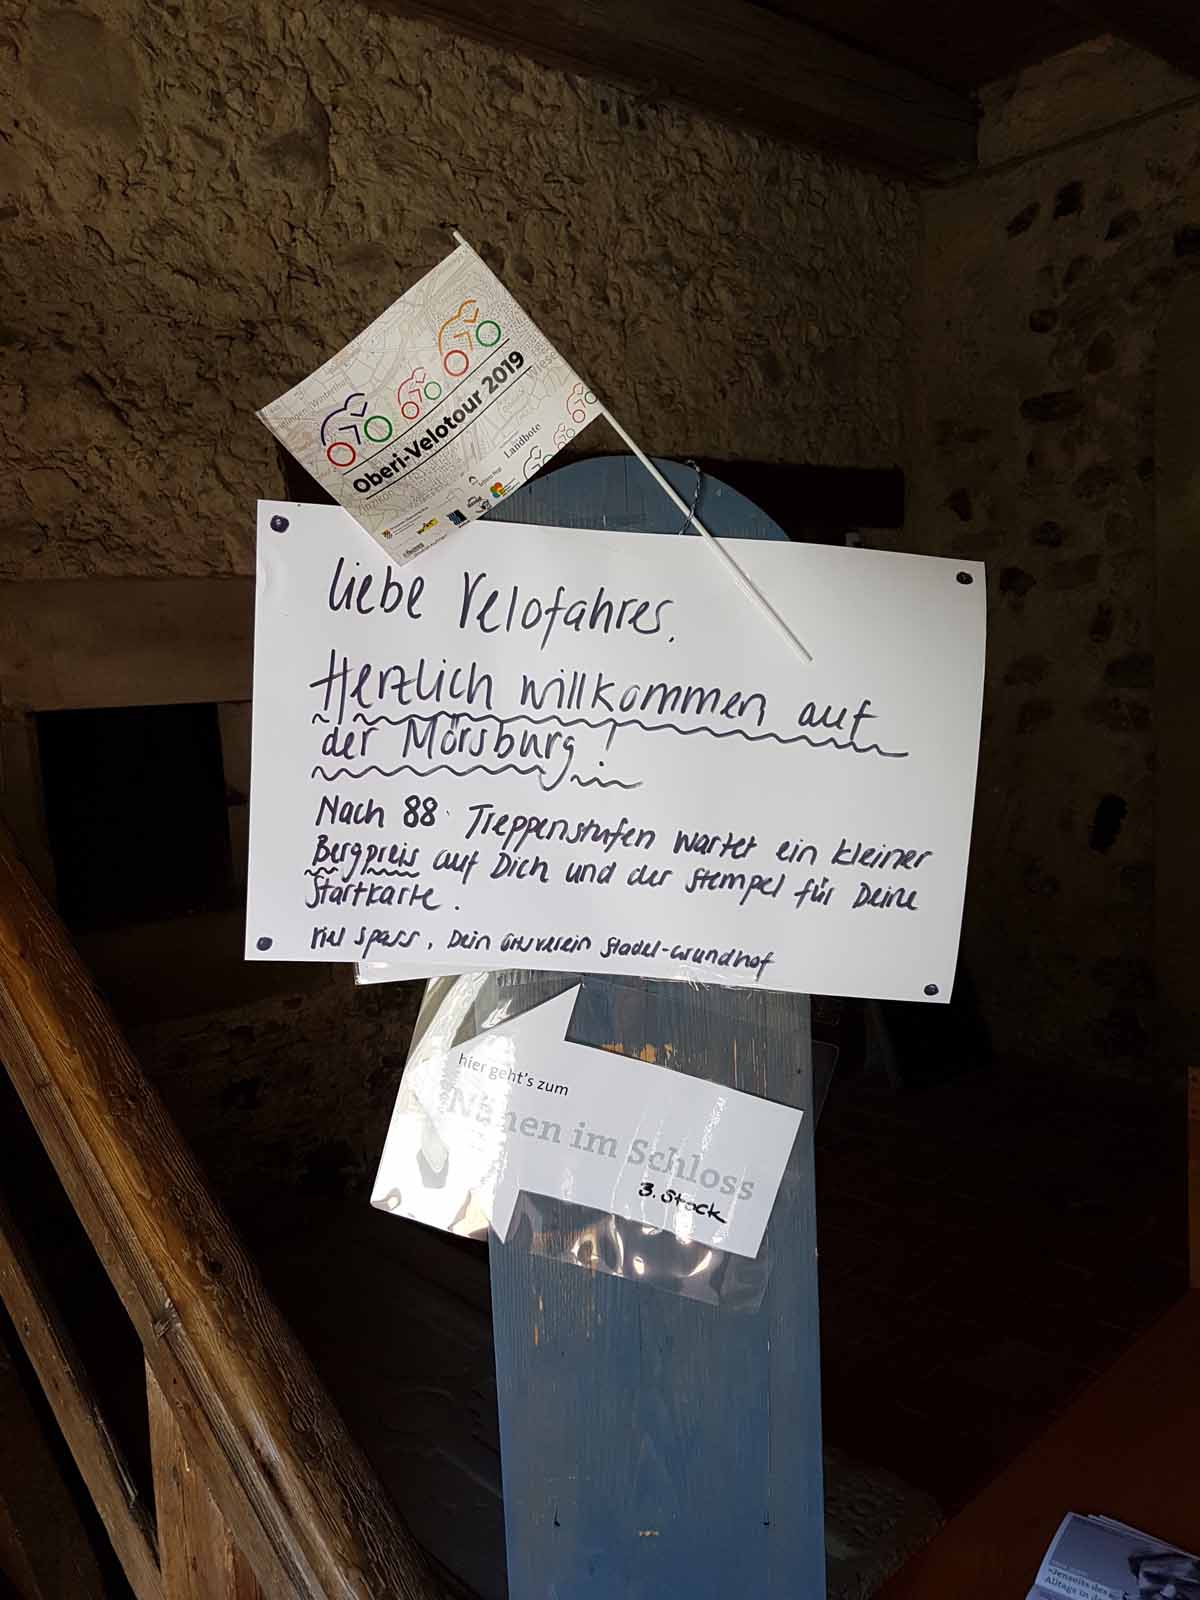 Oberi-Velotour 2019
Landbote
Liebe Velofahrer,
Herzlich willkommen auf
der Mörsburg!
Nach 88 Treppenstufen wartet ein kleiner
Bergpreis auf Dich und der Stempel für Deine
Startkarte.
Viel Spass, Dein Ortsverein Stadel-Grundhof
hier geht's zum
Nähen im Schloss
3. Stock